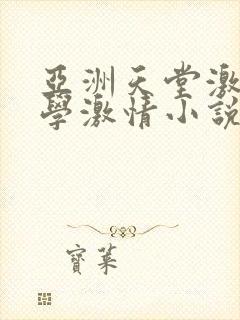 亞洲天堂激
學激情小說
寶萊